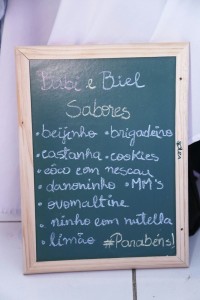 Babi e Biel
Sabores
• beijinho • brigadeiro
• castanha • cookies
• côco com nescau
• danoninho • MM's
• ovomaltine
• ninho com nutella
• limão #Parabéns!